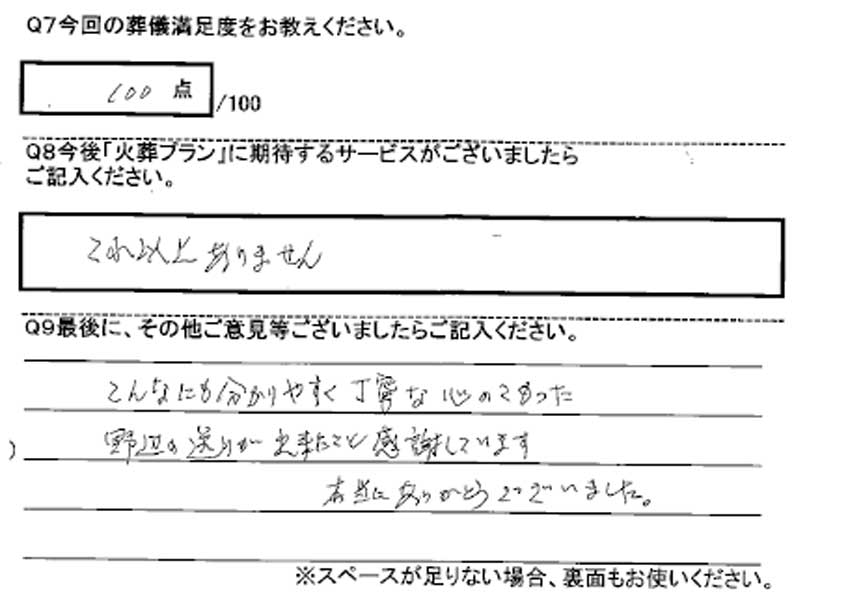 Q7今回の葬儀満足度をお教えください。
100 点 /100
Q8今後「火葬プラン」に期待するサービスがございましたら
ご記入ください。
これ以上ありません
Q9最後に、その他ご意見等ございましたらご記入ください。
こんなにも分かりやすく丁寧な心のこもった
野辺の送りが出来たこと感謝しています
本当にありがとうございました。
※スペースが足りない場合、裏面もお使いください。